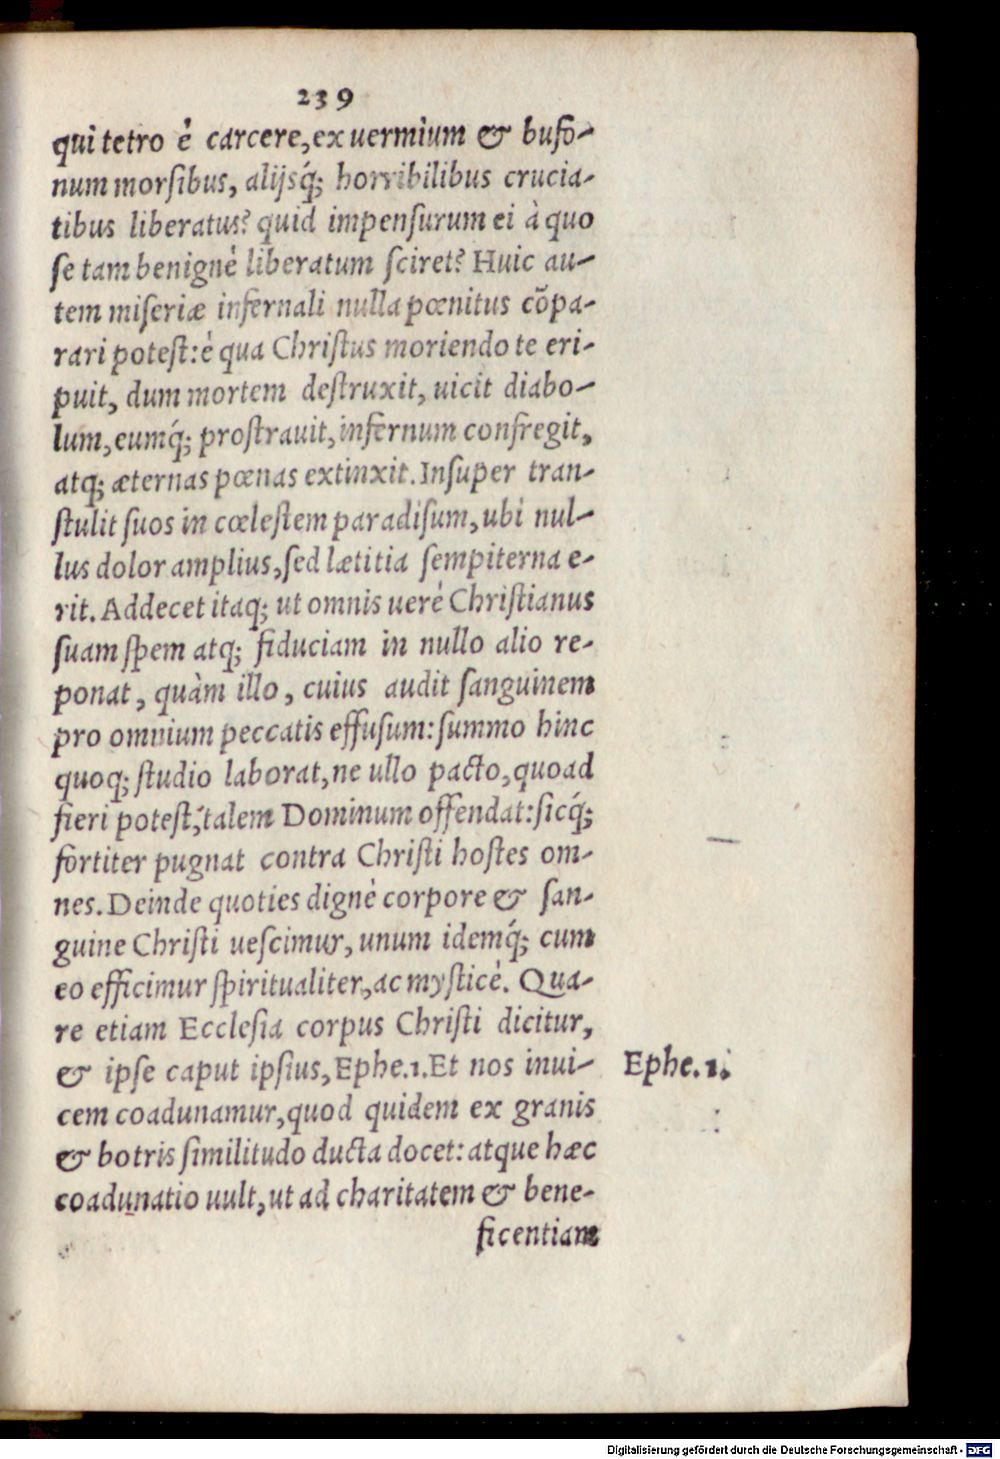 239
qui tetro è carcere, ex uermium & bufo-
num morſibus, alijsq́; horribilibus crucia-
tibus liberatus? quid impenſurum ei à quo
ſe tam benignè liberatum ſciret? Huic au-
tem miſeriæ infernali nulla pœnitus cõpa-
rari poteſt: è qua Chriſtus moriendo te eri-
puit, dum mortem deſtruxit, uicit diabo-
lum, eumq́; proſtrauit, infernum confregit,
atq; æternas pœnas extinxit. Inſuper tran-
ſtulit ſuos in cœleſtem paradiſum, ubi nul-
lus dolor amplius, ſed lætitia ſempiterna e-
rit. Addecet itaq; ut omnis uerè Chriſtianus
ſuam ſpem atq; fiduciam in nullo alio re-
ponat, quàm illo, cuius audit ſanguinem
pro omnium peccatis effuſum: ſummo hinc
quoq; ſtudio laborat, ne ullo pacto, quoad
fieri poteſt, talem Dominum offendat: ſicq́;
fortiter pugnat contra Chriſti hoſtes om-
nes. Deinde quoties dignè corpore & ſan-
guine Chriſti ueſcimur, unum idemq́; cum
eo efficimur ſpiritualiter, ac myſticè. Qua-
re etiam Eccleſia corpus Chriſti dicitur,
& ipſe caput ipſius, Ephe.1. Et nos inui-
Ephe.1.
cem coadunamur, quod quidem ex granis
& botris ſimilitudo ducta docet: atque hæc
coadunatio uult, ut ad charitatem & bene-
ficentiam
Digitalisierung gefördert durch die Deutsche Forschungsgemeinschaft - DFG